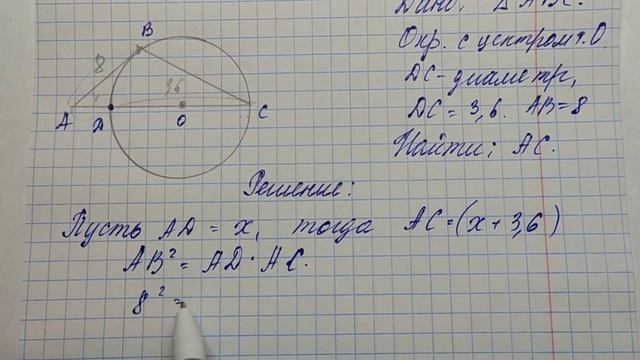 Дано: △ ABC.
Окр. с центром т. O.
DC - диаметр,
DC = 3,6. AB = 8
Найти: AC.
B
8
3,6
A
D
O
C
Решение:
Пусть AD = x, тогда AC = (x + 3,6)
AB² = AD · AC.
8² =